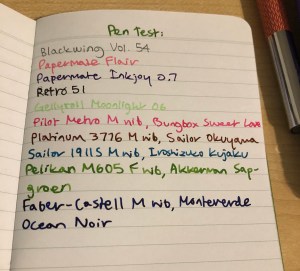 Pen Test:
Blackwing Vol. 54
Papermate Flair
Papermate Inkjoy 0.7
Retro 51
Gellyroll Moonlight 06
Pilot Metro M nib, Bungbox Sweet Love
Platinum 3776 M nib, Sailor Okuyama
Sailor 1911S M nib, Iroshizuku Kujaku
Pelikan M605 F nib, Akkerman Sap-
groen
Faber-Castell M nib, Monteverde
Ocean Noir